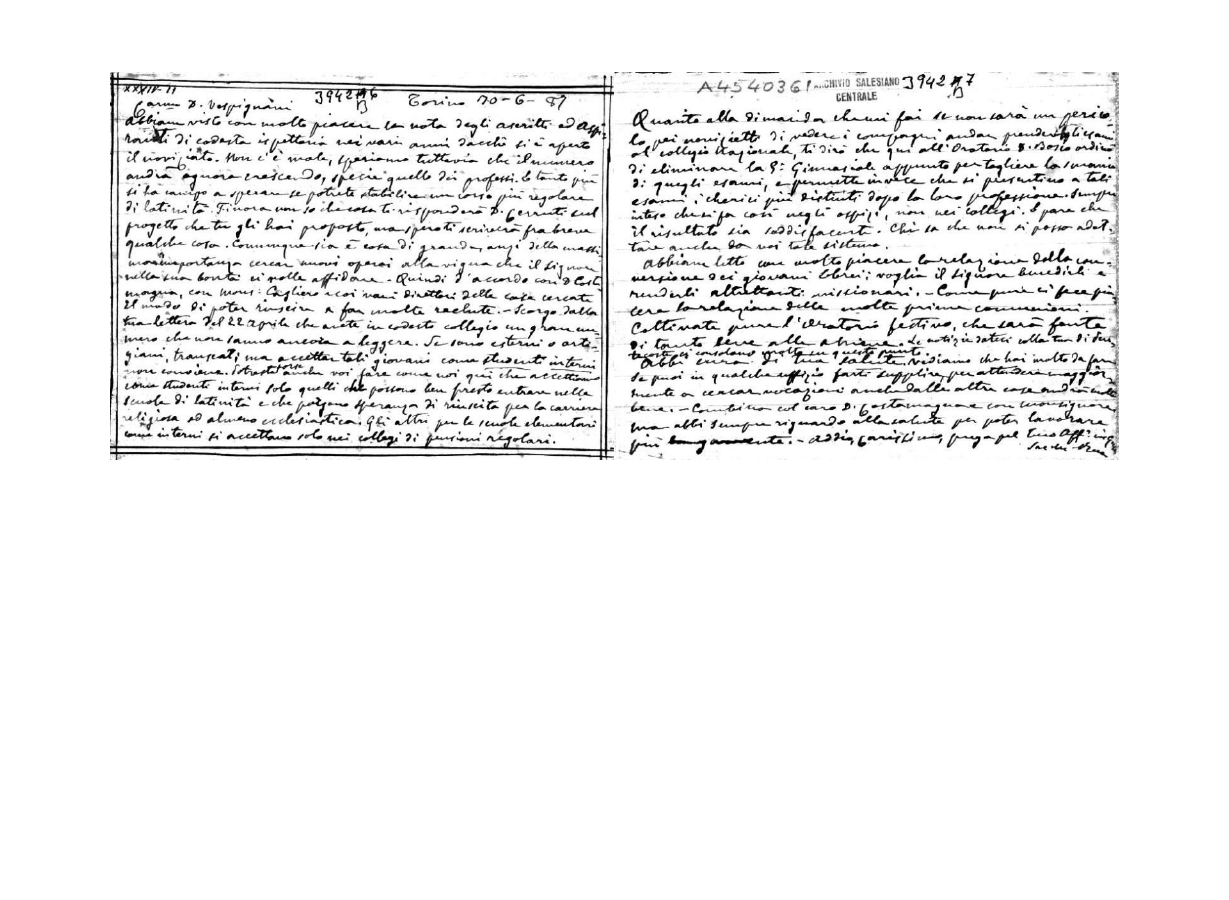 XXXIV-II
3942 B6
Carmo D. Vespignani Torino 20-6-87
Abbiam visto con molto piacere la nota degli ascritti ed aspi-
ranti di codesta ispettoria nei varii anni dacchè si è aperto
il noviziato. Non c'è male, speriamo tuttavia che il numero
andrà ognora crescendo, specie quello dei professi. E tanto più
si ha campo a sperare se potrete stabilire un corso più regolare
di latinità. Finora non so che cosa ti risponderà D. Cerruti sul
progetto che tu gli hai proposto, ma sperasi scriverà fra breve
qualche cosa. Comunque sia è cosa di grande, anzi della massi
ma importanza cercar nuovi operai alla vigna che il Signore
nella sua bontà ci volle affidare. - Quindi d'accordo con D. Cost
magna, con Mons. Cagliero e coi varii direttori delle case cercate
il modo di poter riuscire a far molte reclute. - Scorgo dalla
tua lettera del 22 aprile che avete in codesto collegio un gran nu-
mero che non sanno ancora a leggere. Se sono esterni o arti-
giani, transeat, ma accettar tali giovani come studenti interni
non conviene. anche voi fare come noi qui che accettiamo
come studenti interni solo quelli che possono ben presto entrare nelle
scuole di latinità e che porgono speranza di riuscita per la carriera
religiosa od almeno ecclesiastica. Gli altri per le scuole elementari
come interni si accettano solo nei collegi di pensioni regolari.
A4540361 ARCHIVIO SALESIANO 3942 B7
CENTRALE
Quanto alla dimanda che mi fai se non sarà un perico-
lo pei novizietti di vedere i compagni andar prendere gli esami
al collegio Nazionale, ti dirò che qui all'Oratorio D. Bosco ordinò
di eliminare la 5ª Ginnasiale appunto per togliere la smania
di quegli esami, e permette invece che si presentino a tali
esami i chierici più distinti dopo la loro professione. Sempre
inteso che si fa così negli ospizi, non nei collegi. E pare che
il risultato sia soddisfacente. Chi sa che non si possa adot-
tare anche da voi tale sistema.
Abbiam letto con molto piacere la relazione della con-
versione dei giovani Ebrei; voglia il Signore benedirli e
renderli altrettanti missionari. - Come pure ci fece pia
cere la relazione delle molte prime comunioni.
Coltivate pure l'Oratorio festivo, che sarà fonte
di tanto bene alle anime. Le notizie dateci colla tua di
ci consolano molto su questo punto.
Abbi cura di tua salute, vediamo che hai molto da fare
se puoi in qualche uffizio farti supplire per attendere maggior
mente a cercar vocazioni anche dalle altre case andrà molto
bene. - Combina col caro D. Costamagna e con Monsignore
ma abbi sempre riguardo alla salute per poter lavorare
più lungamente. - Addio, Carissimo, prega pel tuo Aff.